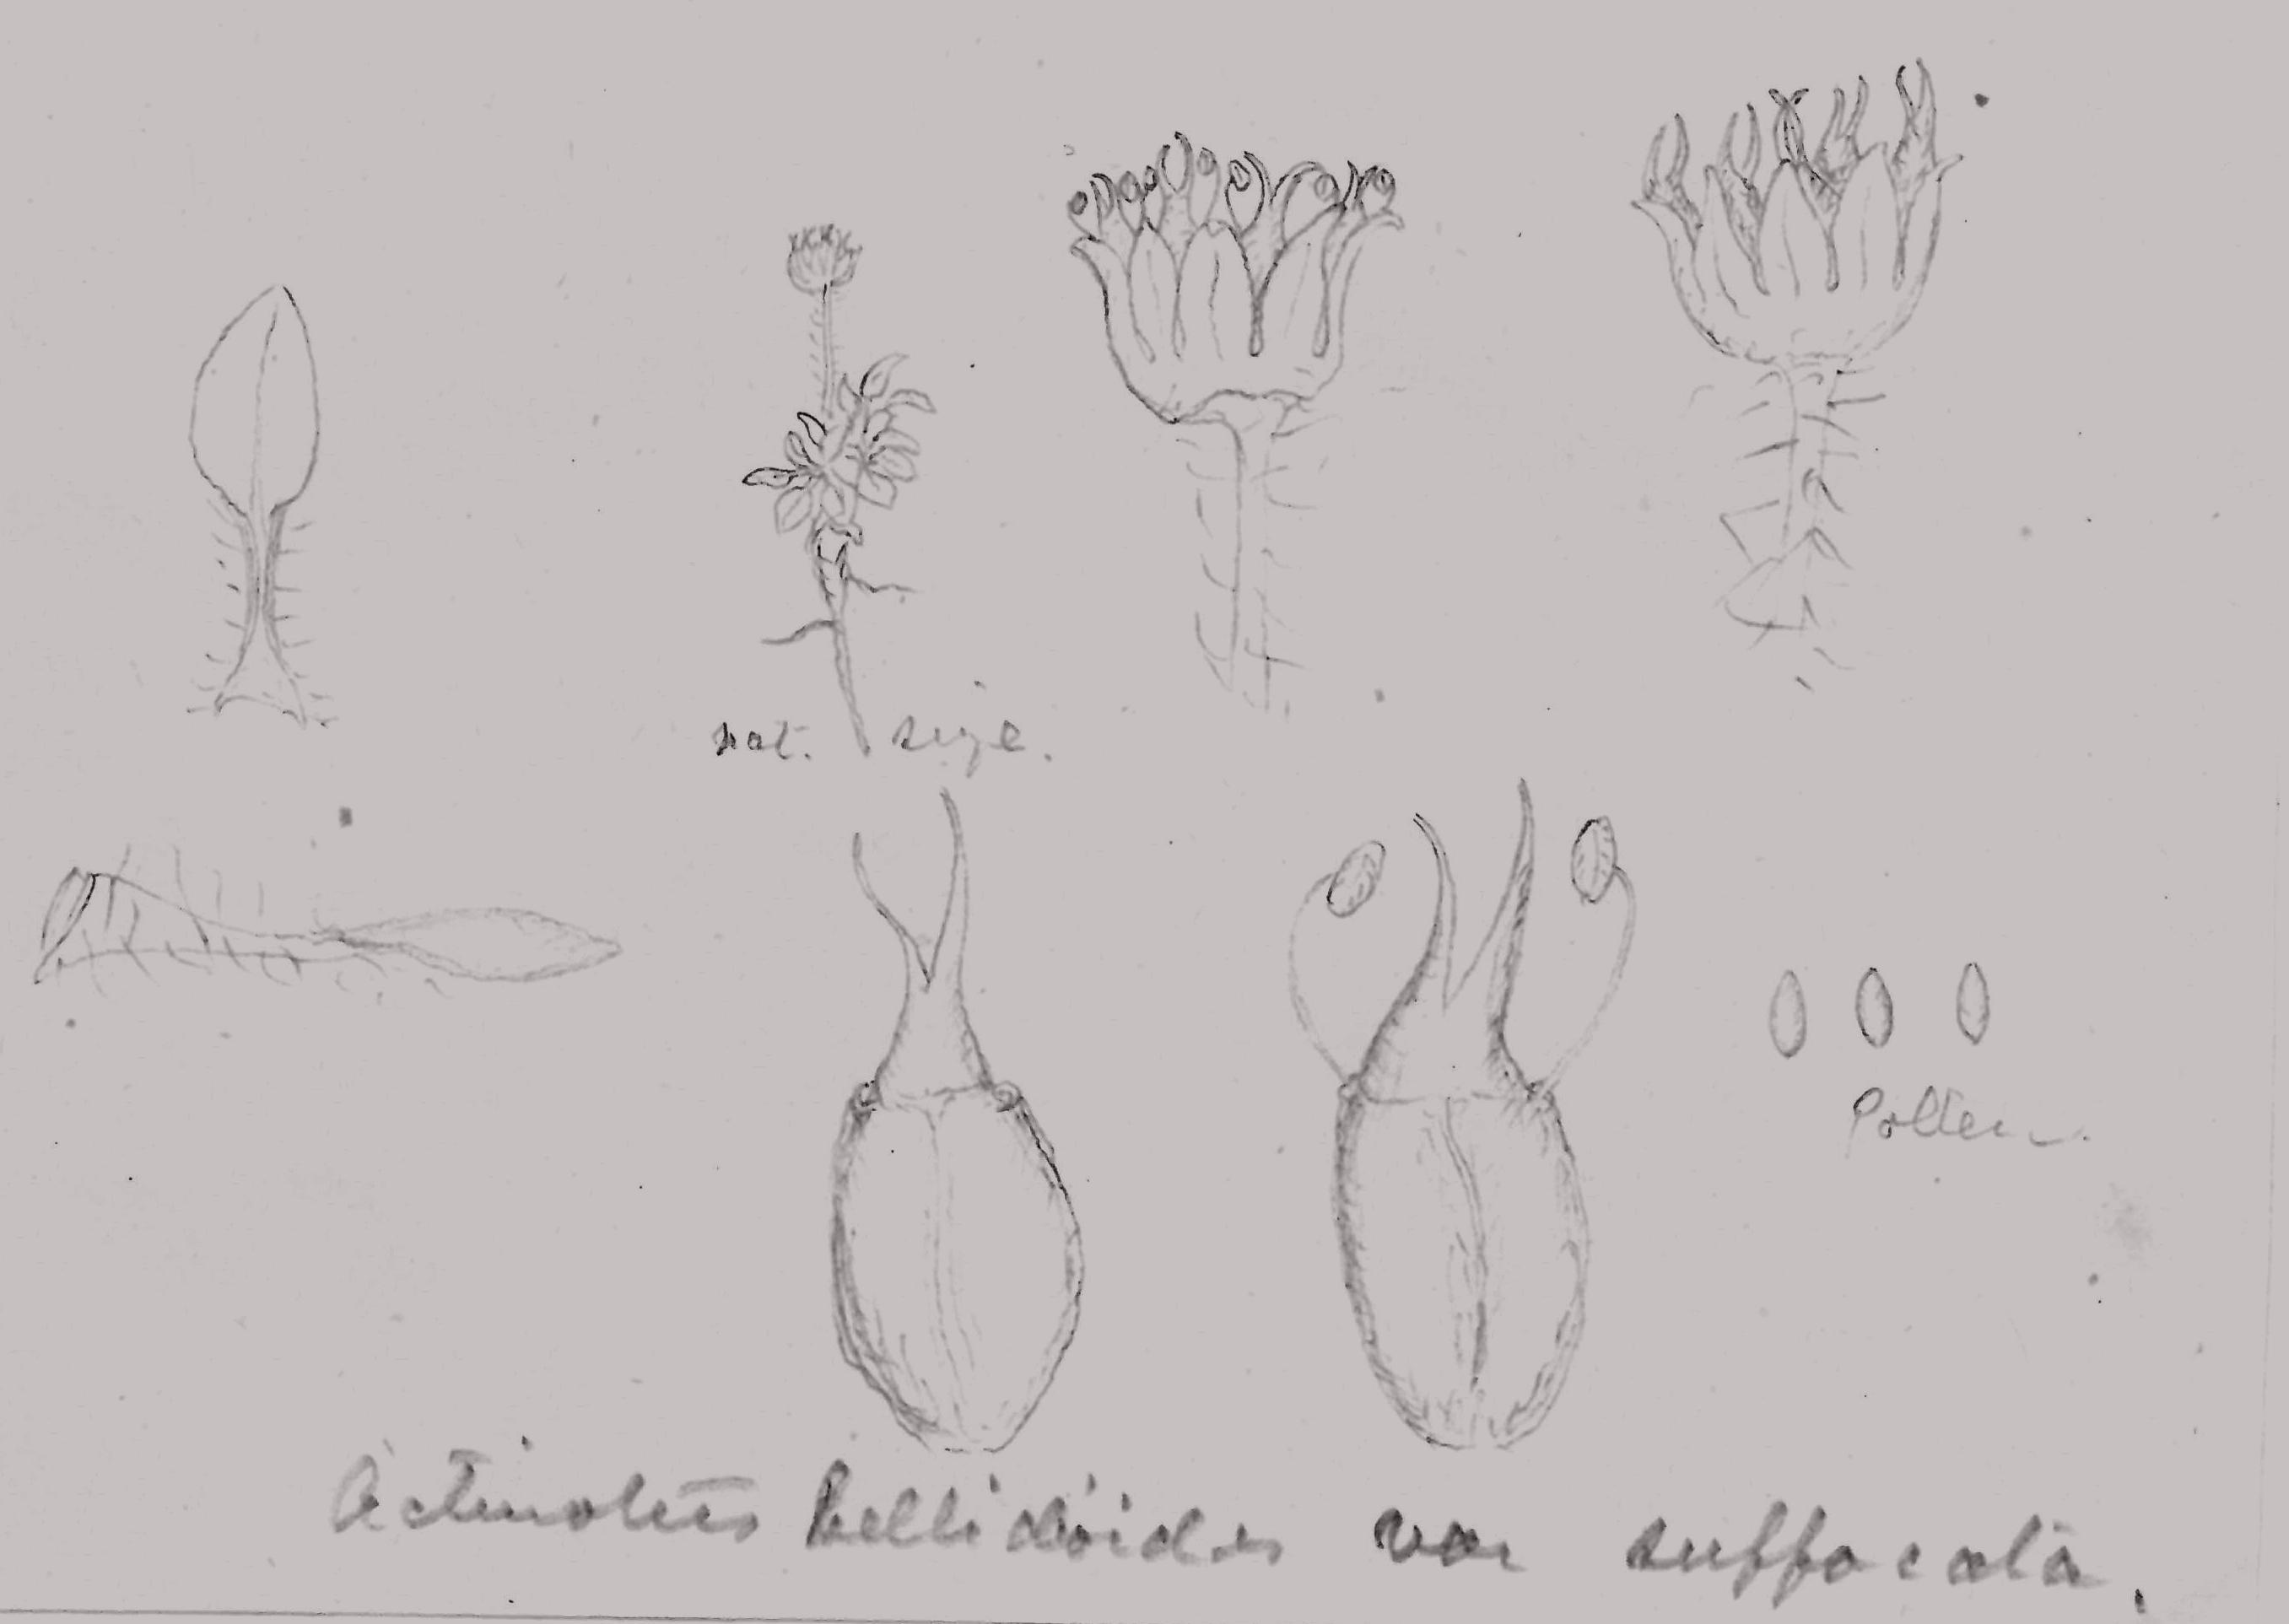 nat. size.
Pollen.
Actinotus Bellidioides var suffocata.